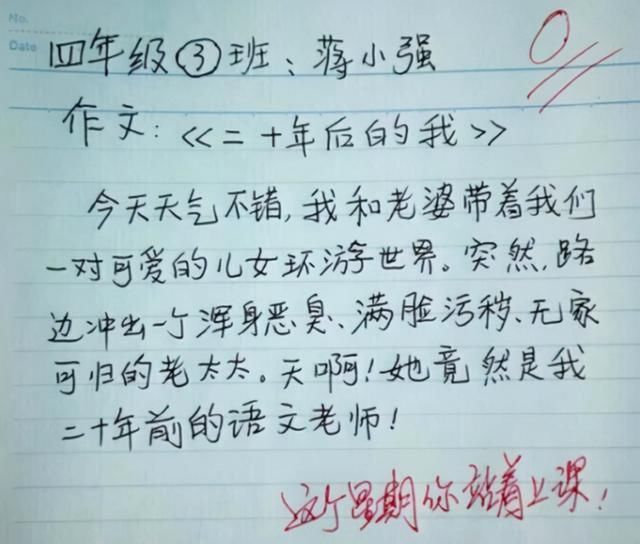 No.
Date
四年级③班：蒋小强
0
作文：<<二十年后的我>>
今天天气不错，我和老婆带着我们
一对可爱的儿女环游世界。突然，路
边冲出一个浑身恶臭、满脸污秽、无家
可归的老太太。天啊！她竟然是我
二十年前的语文老师！
这个星期你站着上课！